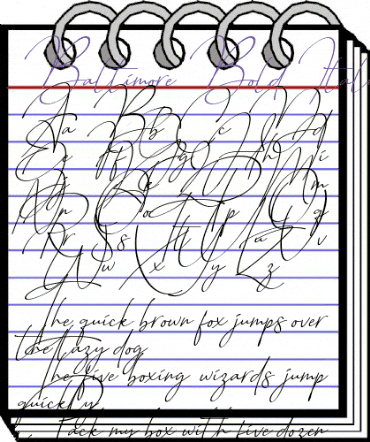 Baltimore Bold Ital
A a B b C c D d
E e F f G g H h I i
J j K k L l M m
N n O o P p Q q
R r S s T t U u V v
W w X x Y y Z z
The quick brown fox jumps over
the lazy dog
The five boxing wizards jump
quickly
Pack my box with five dozen